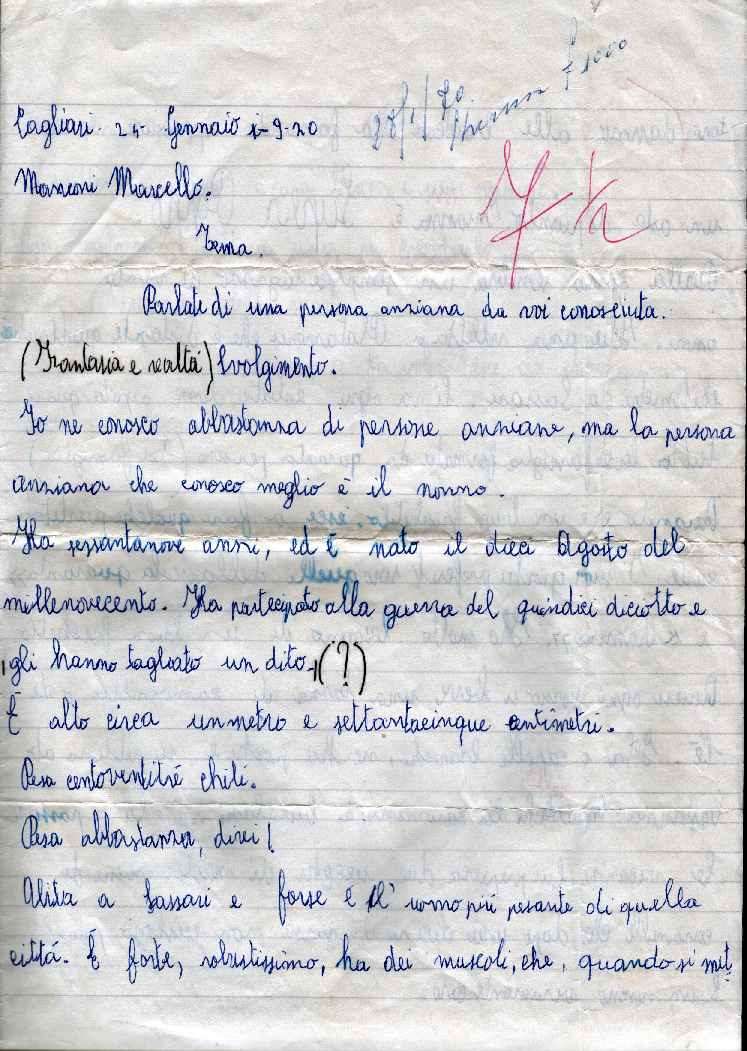 28/1/70 £ 1000
Cagliari. 24 Gennaio 1-9-70
Manconi Marcello.
7 ½
Tema.
Parlate di una persona anziana da voi conosciuta.
(Frantasia e realtá) Svolgimento.
Io ne conosco abbastanza di persone anziane, ma la persona
anziana che conosco meglio é il nonno.
Ha sessantanove anni, ed É nato il dieci Agosto del
millenovecento. Ha partecipato alla guerra del quindici diciotto e
gli hanno tagliato un dito (?)
É alto circa un metro e settantacinque centimetri.
Pesa centoventitré chili.
Pesa abbastanza, direi!
Abita a Sassari e forse é l'uomo piú pesante di quella
cittá. É forte, robustissimo, ha dei muscoli, che, quando si met